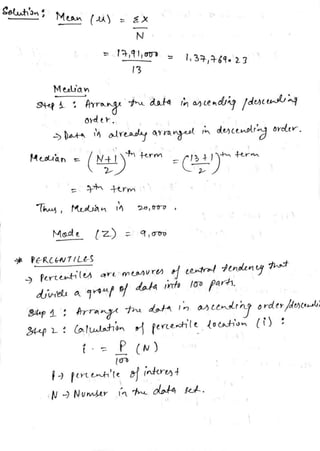 Solution: Mean (μ) = ΣX
N
= 17,91,000 = 1,37,769.23
13
Median
Step 1 : Arrange the data in ascending /descending
order.
→ Data is already arranged in descending order.
Median = (N+1/2)th term = (13+1/2)th term
= 7th term
Thus, Median is 20,000.
Mode (Z) = 9,000
* PERCENTILES
→ Percentiles are measures of central tendency that
divide a group of data into 100 parts.
Step 1 : Arrange the data in ascending order/descendi
Step 2 : Calculation of percentile location (i) :
i = P (N)
100
P → percentile of interest
N → Number in the data set.